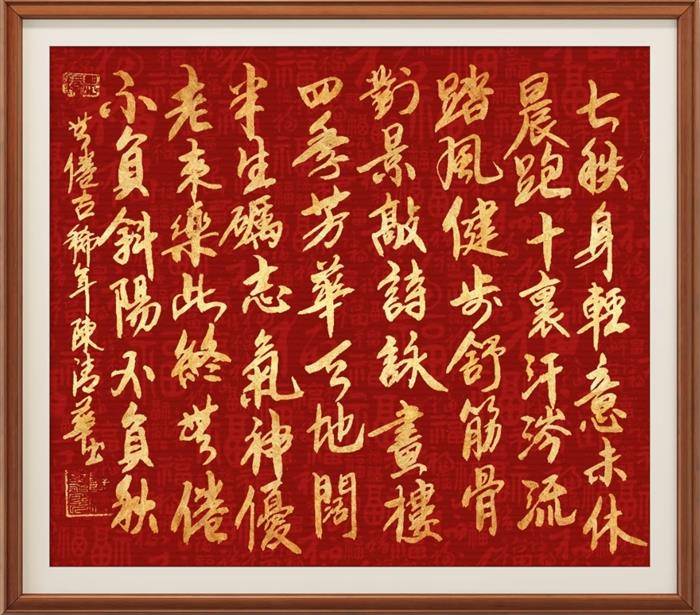 七秩身輕意未休
晨跑十裏汗涔流
踏風健步舒筋骨
對景敲詩詠畫樓
四季芳華天地闊
半生礪志氣神優
老來樂此終無倦
不負斜陽不負秋
無倦古稀年陳清華書